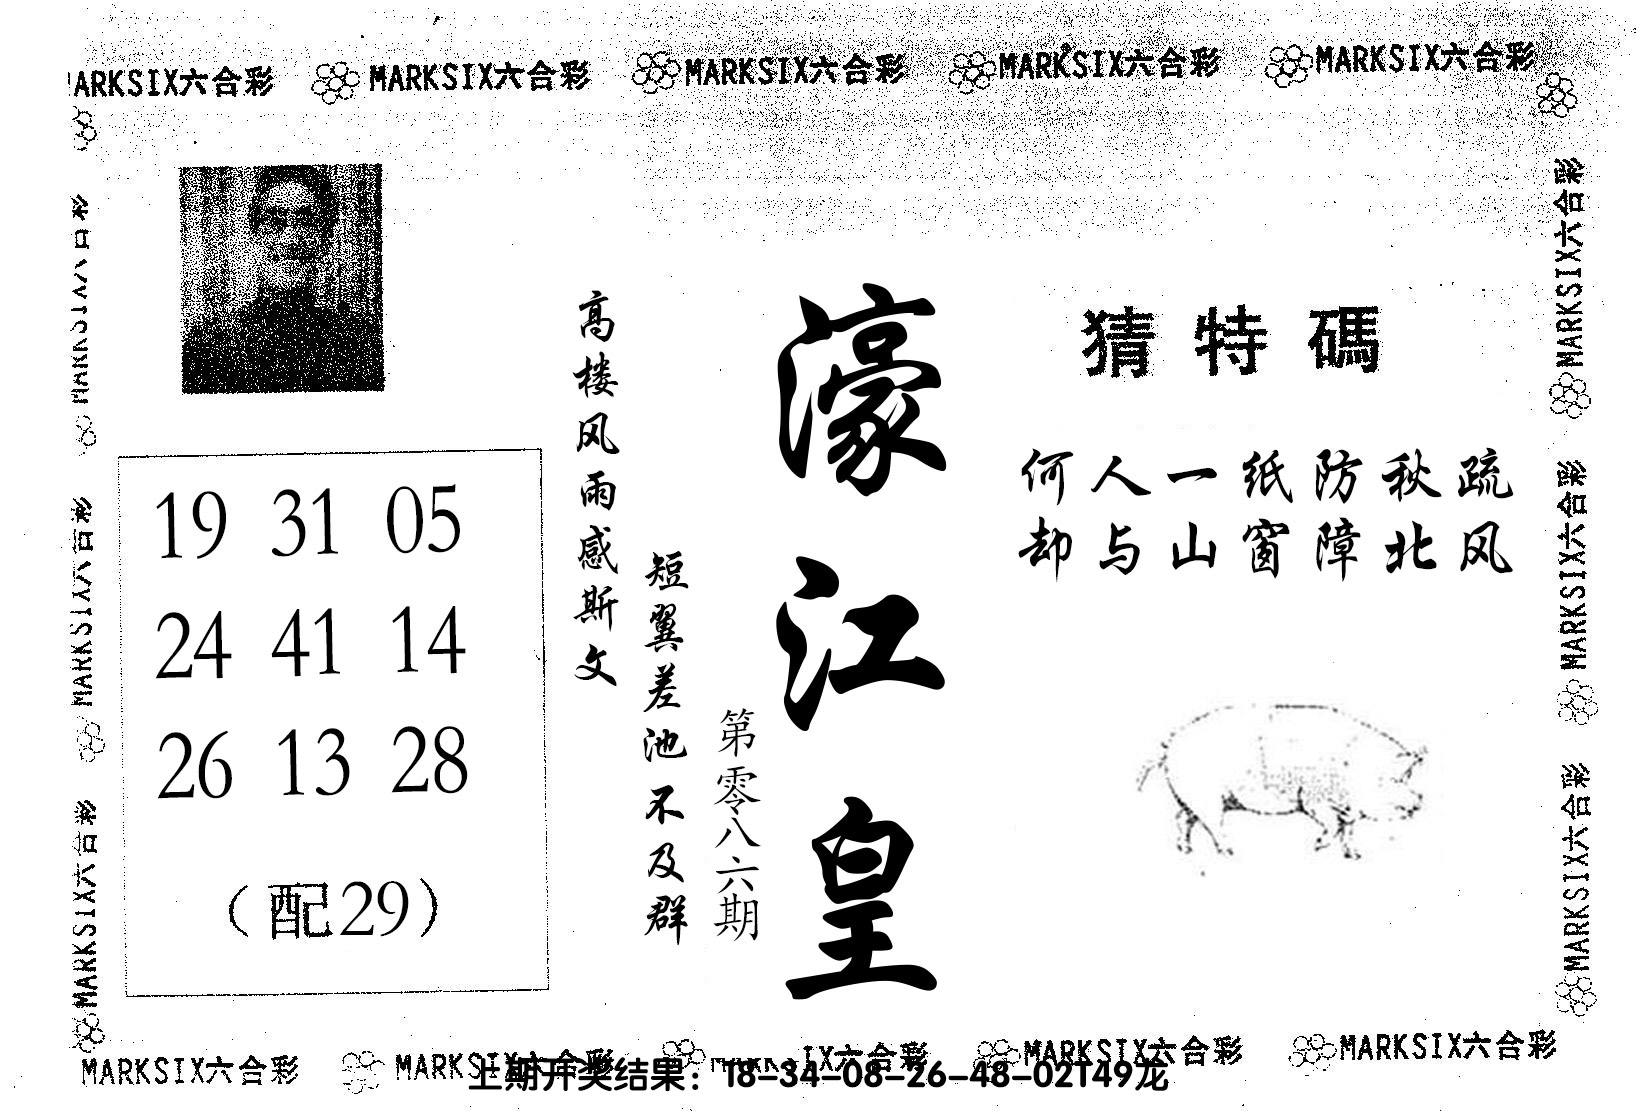 MARKSIX六合彩 MARKSIX六合彩 MARKSIX六合彩 MARKSIX六合彩
MARKSIX六合彩
猜特碼
何人一纸防秋疏
却与山窗障北风
濠江皇
第零八六期
高楼风雨感斯文
短翼差池不及群
19 31 05
24 41 14
26 13 28
（配29）
MARKSIX六合彩
MARKSIX六合彩
MARKSIX六合彩
MARKSIX六合彩
MARKSIX六合彩
MARKSIX六合彩
MARKSIX六合彩 MARKSIX六合彩 MARKSIX六合彩 MARKSIX六合彩
上期开奖结果：18-34-08-26-48-02T49龙